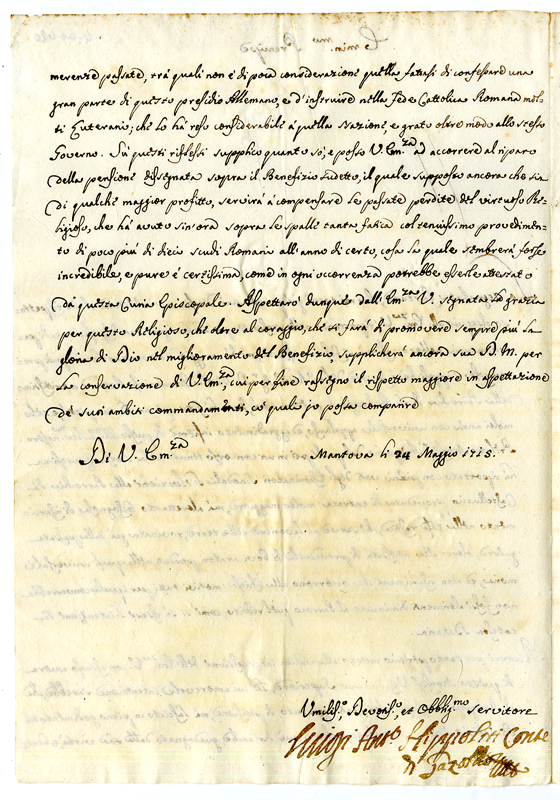 merenze passate, trà quali non è di poca considerazione quella fatasi di confessare una
gran parte di questo presidio Allemano, e d'instruire nella Fede Cattolica Romana mol-
ti Luterani; che lo hà reso considerabile à quella Nazione, e grato oltre modo allo stesso
Governo. Sù questi riflessi supplico quanto sò, e posso V. Em.za ad accorrere al riparo
della pensione dissegnata sopra il Benefizio sudetto, il quale supposto ancora che sia
di qualche maggior profitto, servirà à compensare le passate perdite del virtuoso Re-
ligioso, che hà avuto sin'ora sopra le spalle tanta fatica col tenuissimo provedimen-
to di poco più di dieci scudi Romani all'anno di certo, cosa la quale sembrerà forse
incredibile, e pure è certissima, come in ogni occorrenza potrebbe esserle attestato
dà questa Curia Episcopale. Aspettarò dunque dall'Em.za V. segnata la grazia
per questo Religioso, che oltre al coraggio, che si farà di promovere sempre più la
gloria di Dio nel miglioramento del Benefizio, supplicherà ancora sua D. M. per
la conservazione di V. Em.za, cui per fine rassegno il rispetto maggiore in aspettazione
de' suoi ambiti commandamenti, co' quali io possa comparire
Di V. Em.za Mantova li 24 Maggio 1715.
Umiliss.o, Devotiss.o, et Obblig.mo Servitore
Luigi Ant.o Hippoliti Conte
di Gazoldo